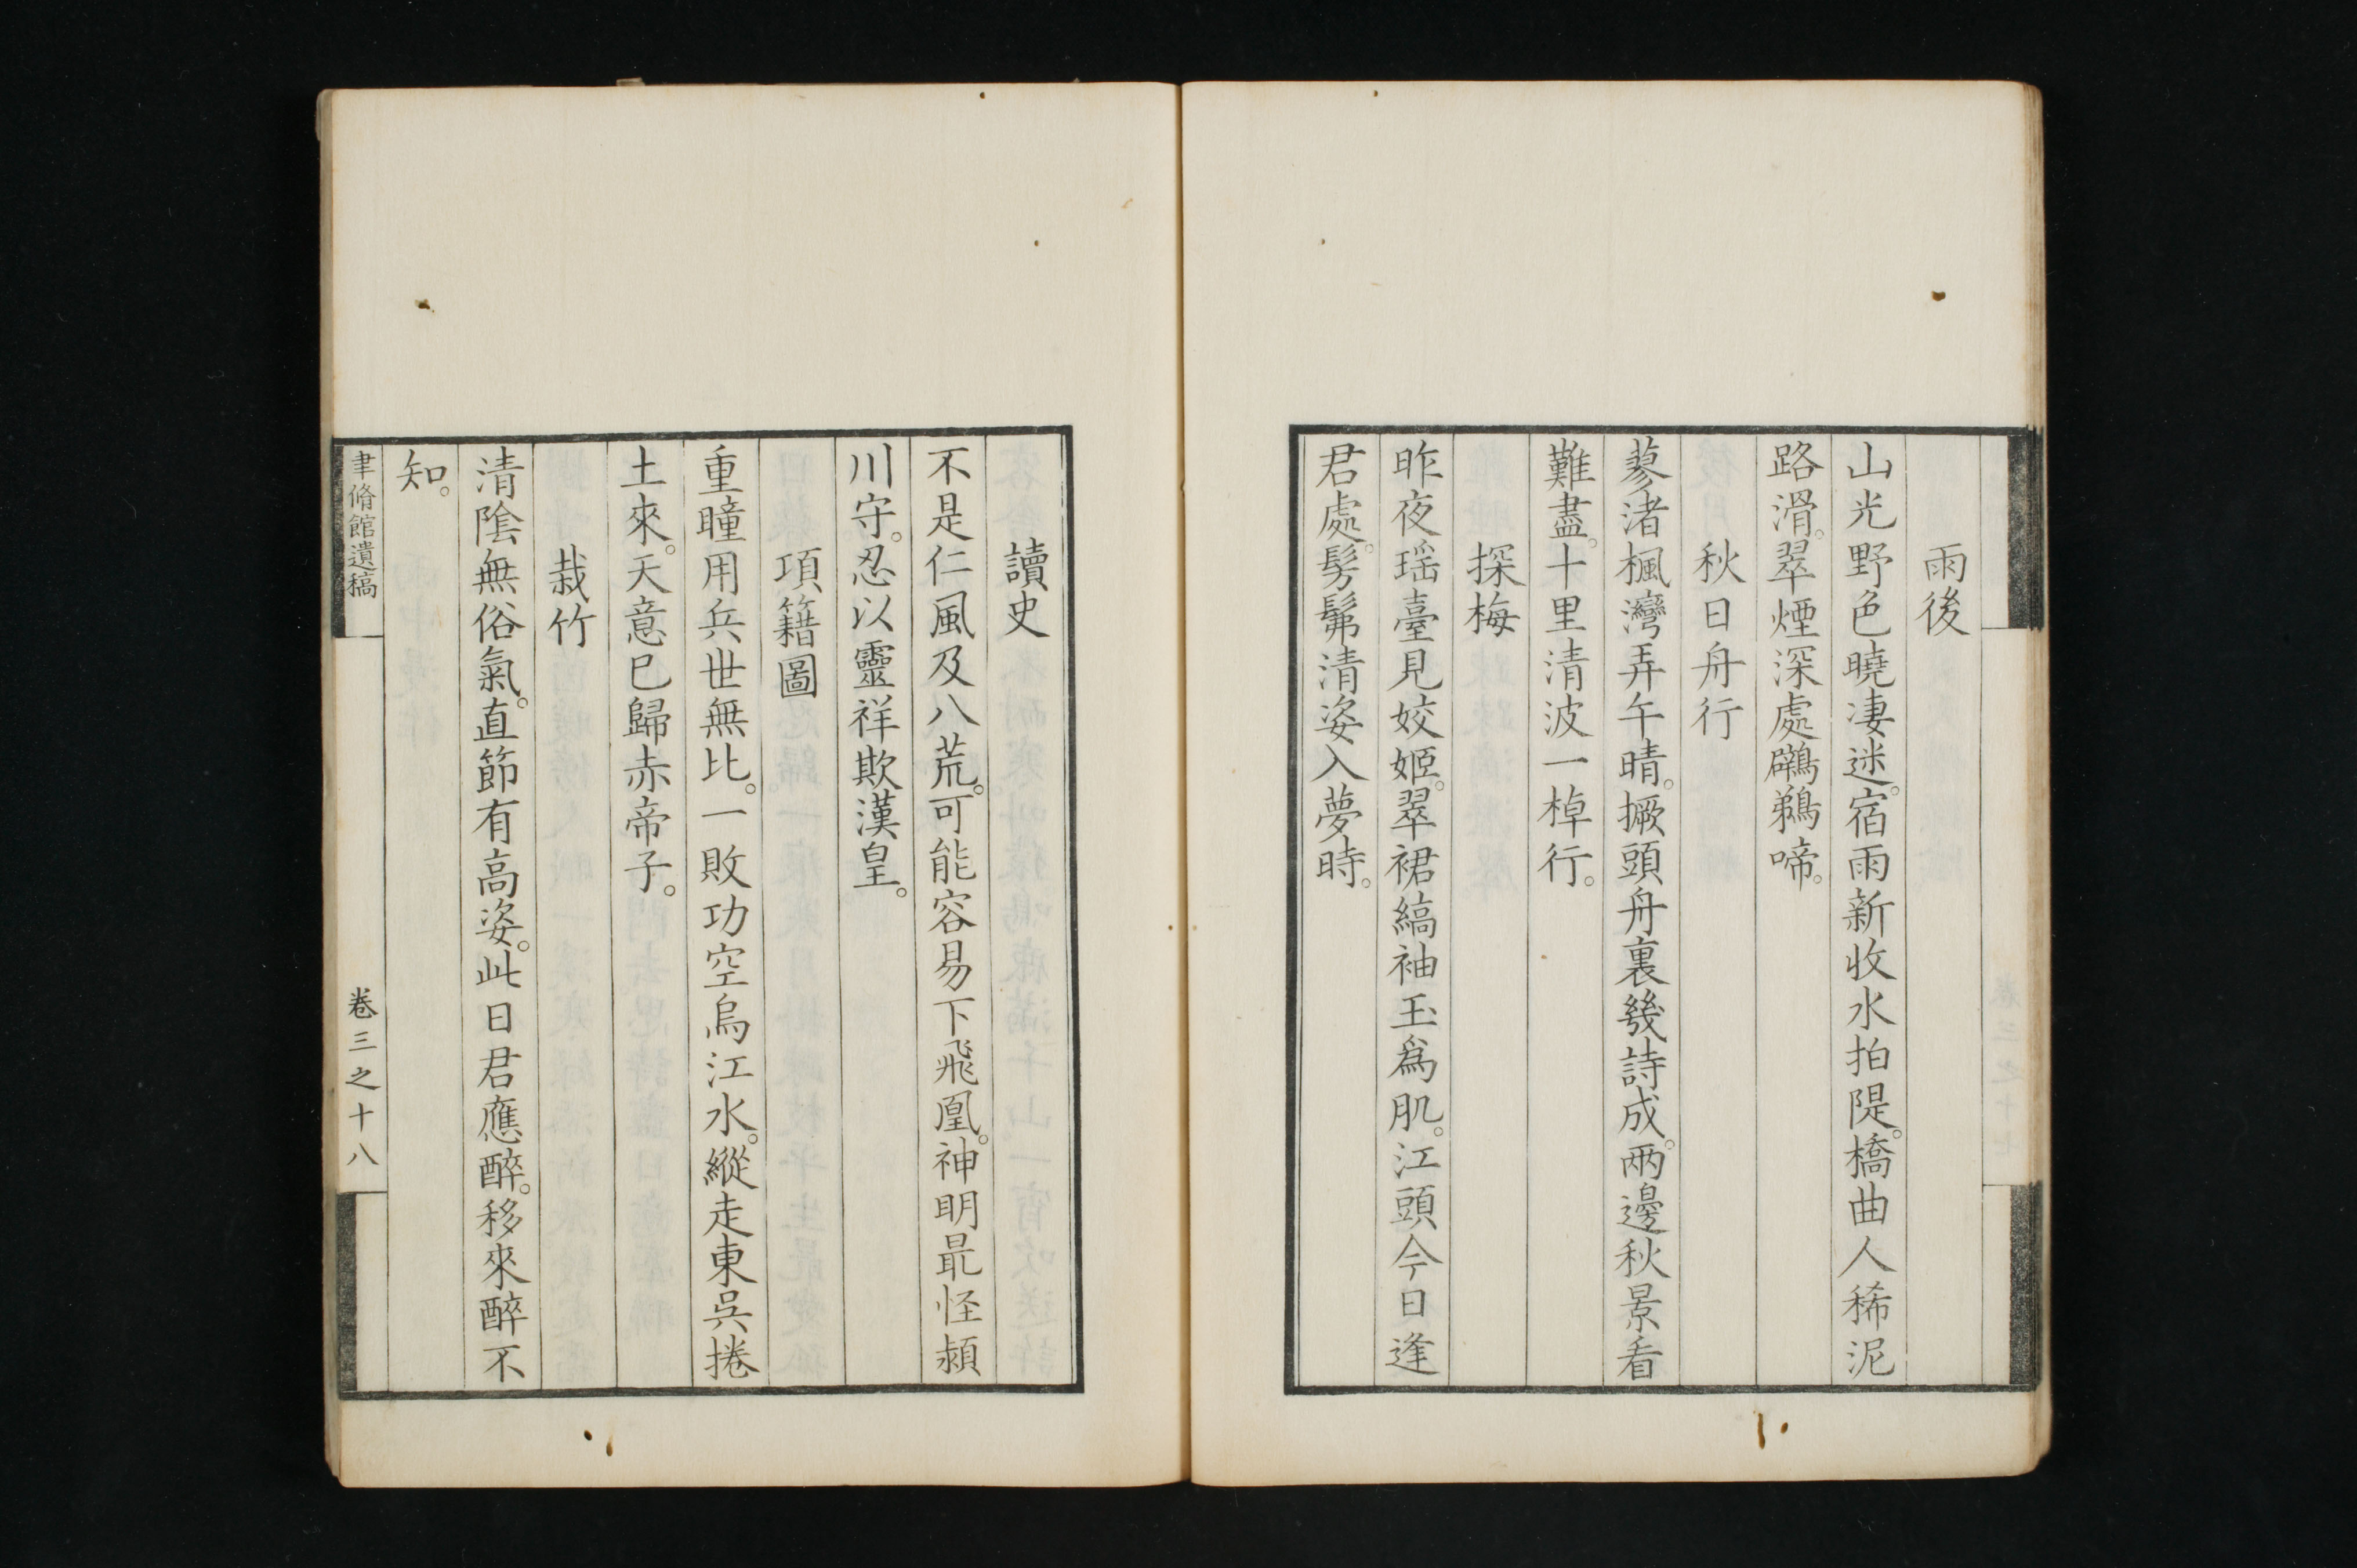 雨後
山光野色曉凄迷。宿雨新收水拍隄。橋曲人稀泥
路滑。翠煙深處鸊鵜啼。
秋日舟行
蓼渚楓灣弄午晴。撅頭舟裏幾詩成。兩邊秋景看
難盡。十里清波一棹行。
探梅
昨夜瑶臺見姣姬。翠裙縞袖玉爲肌。江頭今日逢
君處。髣髴清姿入夢時。
讀史
不是仁風及八荒。可能容易下飛凰。神明最怪潁
川守。忍以靈祥欺漢皇。
項籍圖
重瞳用兵世無比。一敗功空烏江水。縱走東吳捲
土來。天意已歸赤帝子。
栽竹
清陰無俗氣。直節有高姿。此日君應醉。移來醉不
知。
聿脩館遺稿
卷三之十八